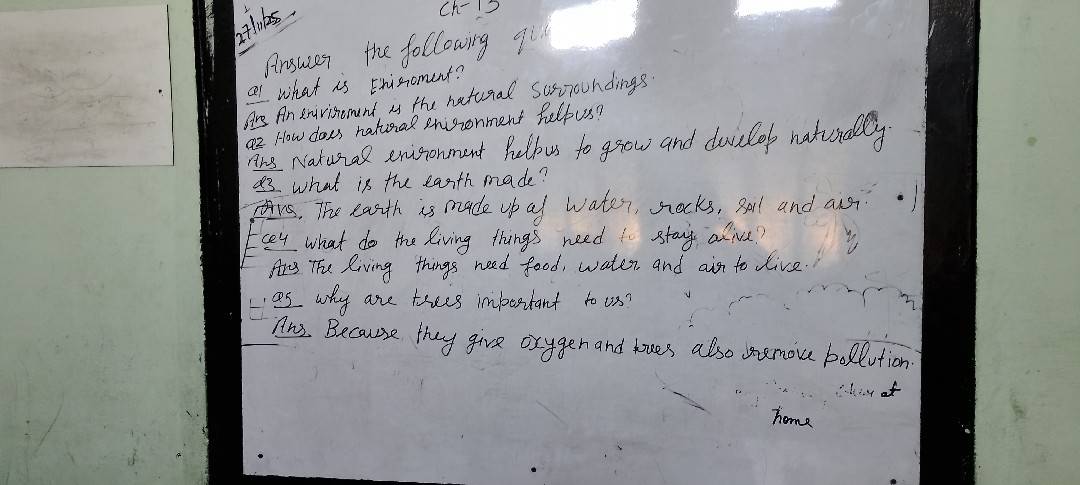 27/11/25
Ch-13
Answer the following
Q1 What is Enironment?
Ans An enivironment is the natural surroundings.
Q2 How does natural environment help us?
Ans Natural environment help us to grow and develop naturally.
Q3 What is the earth made?
Ans. The earth is made up of water, rocks, soil and air.
Q4 What do the living things need to stay alive?
Ans The living things need food, water and air to live.
Q5 Why are trees important to us?
Ans Because they give oxygen and trees also remove pollution.
at
home